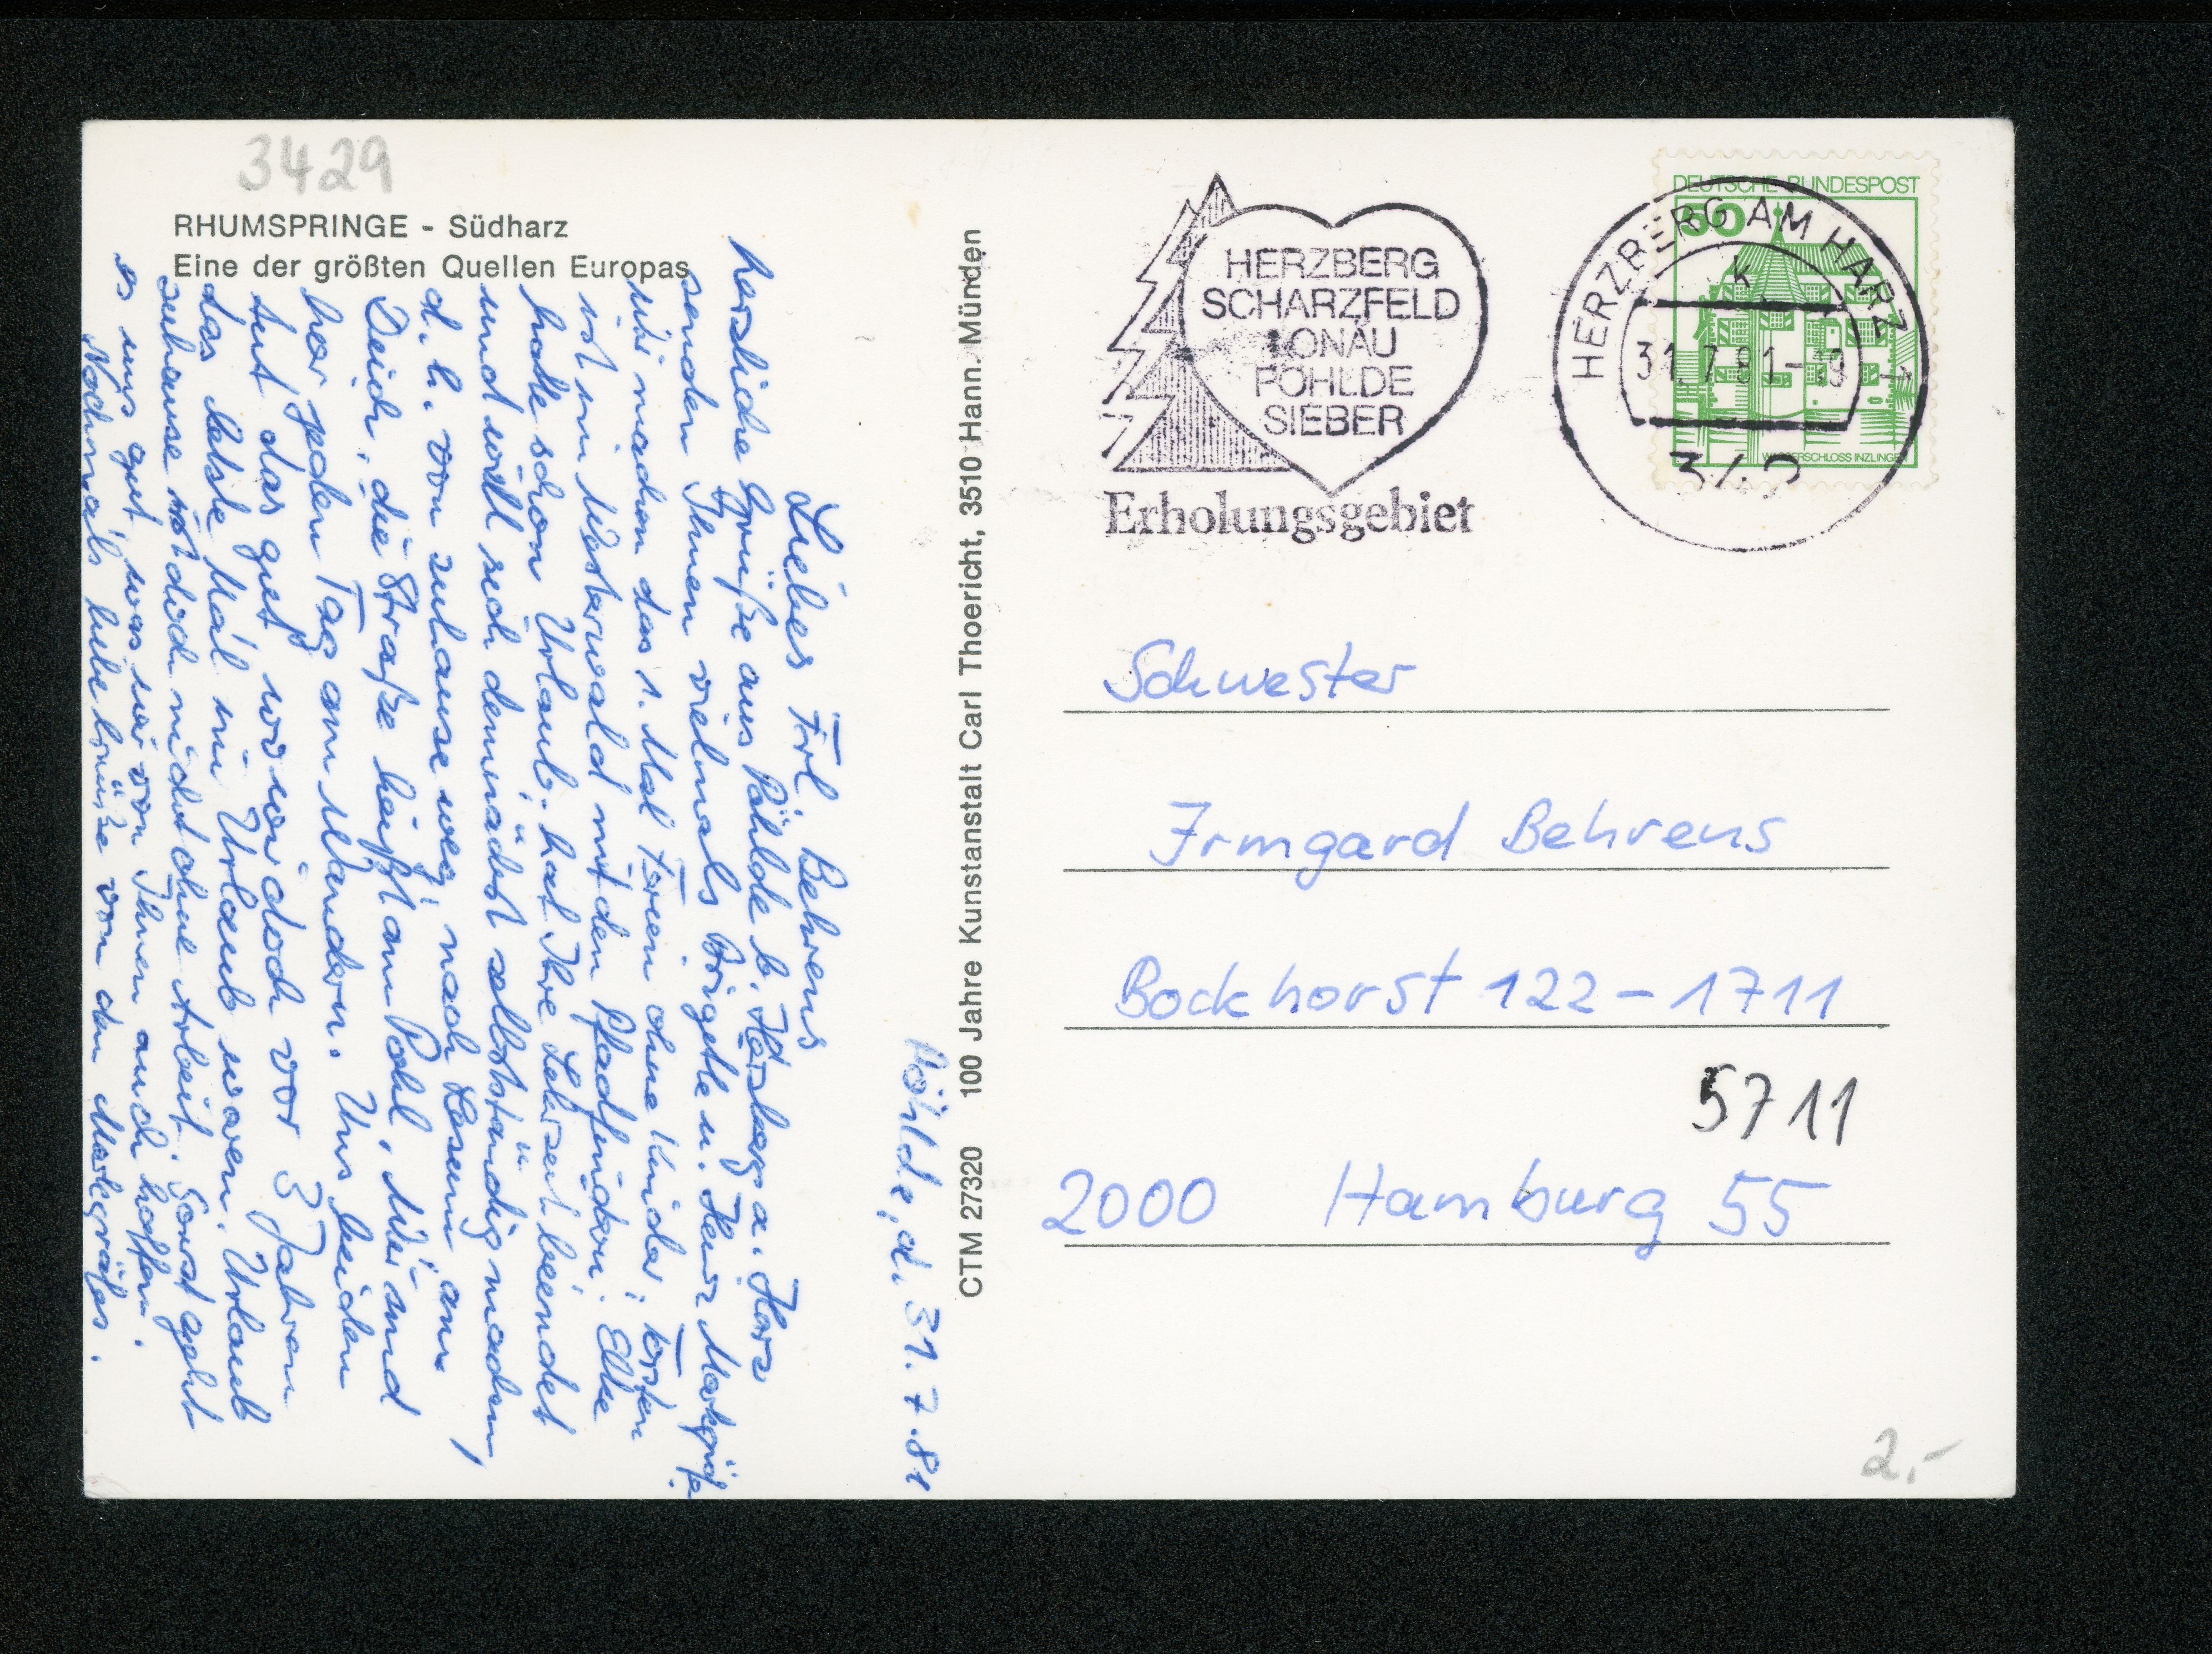 3429
RHUMSPRINGE - Südharz
Eine der größten Quellen Europas
Pöhlde, d. 31.7.81
Liebes Frl. Behrens
herzliche Grüße aus Pöhlde b. Herzberg a. Harz
senden Ihnen vielmals Brigitte u. Herr Markgräfe.
Wir machen das 1. Mal Ferien ohne Kinder; Torsten
ist im Westerwald mit den Pfadfindern. Elke
hatte schon Urlaub, hat Ihre Lehrzeit beendet
und will sich demnächst selbstständig machen,
d. h. von zuhause weg, nach Husum, am
Deich, die Straße heißt am Pohl. Wir sind
hier jeden Tag am Wandern. Uns beiden
tut das gut, wo wir doch vor 3 Jahren
das letzte Mal im Urlaub waren. Urlaub
zuhause ist doch nicht ohne Arbeit. Sonst geht
es uns gut was wir von Ihnen auch hoffen.
Nochmals liebe Grüße von den Markgräfes.
CTM 27320 100 Jahre Kunstanstalt Carl Thoericht, 3510 Hann. Münden
HERZBERG
SCHARZFELD
LONAU
PÖHLDE
SIEBER
Erholungsgebiet
DEUTSCHE BUNDESPOST
50
WASSERSCHLOSS INZLINGEN
HERZBERG AM HARZ 1
k
31.7.81-19
342
Schwester
Irmgard Behrens
Bockhorst 122-1711
5711
2000 Hamburg 55
2,-